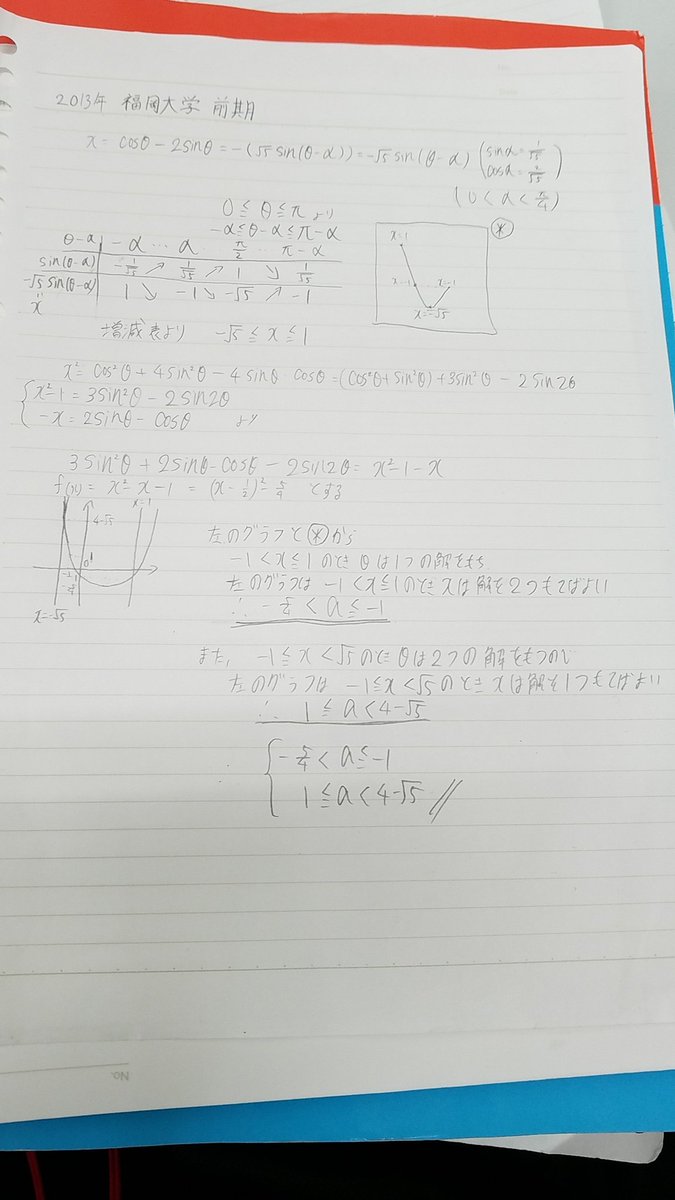 2013年 福岡大学 前期
x = cosθ - 2sinθ = -(√5 sin(θ-α)) = -√5 sin(θ-α) (sinα = 1/√5 cosα = 2/√5)
(0 < α < π/4)
0 ≦ θ ≦ π より
-α ≦ θ-α ≦ π-α
θ-α | -α … α π/2 … π-α
sin(θ-α) | -1/√5 ↗ 1/√5 ↗ 1 ↘ 1/√5
-√5 sin(θ-α) | 1 ↘ -1 ↘ -√5 ↗ -1
x
※
x=1
x=-1
x=-1
x=-√5
増減表より -√5 ≦ x ≦ 1
x² = cos²θ + 4sin²θ - 4sinθ・cosθ = (cos²θ + sin²θ) + 3sin²θ - 2sin2θ
{ x²-1 = 3sin²θ - 2sin2θ
-x = 2sinθ - cosθ より
3sin²θ + 2sinθ - cosθ - 2sin2θ = x² - 1 - x
f(x) = x² - x - 1 = (x - 1/2)² - 5/4 とする
x=1
4-√5
0
x=-√5
左のグラフと※から
-1 < x ≦ 1 のとき θは1つの解をもち
左のグラフは -1 < x ≦ 1 のとき xは解を2つもてばよい
∴ -5/4 < a ≦ -1
また、 -1 ≦ x < √5 のとき θは2つの解をもつので
左のグラフは -1 ≦ x < √5 のとき xは解を1つもてばよい
∴ 1 ≦ a < 4-√5
{ -5/4 < a ≦ -1
1 ≦ a < 4-√5 //
No.